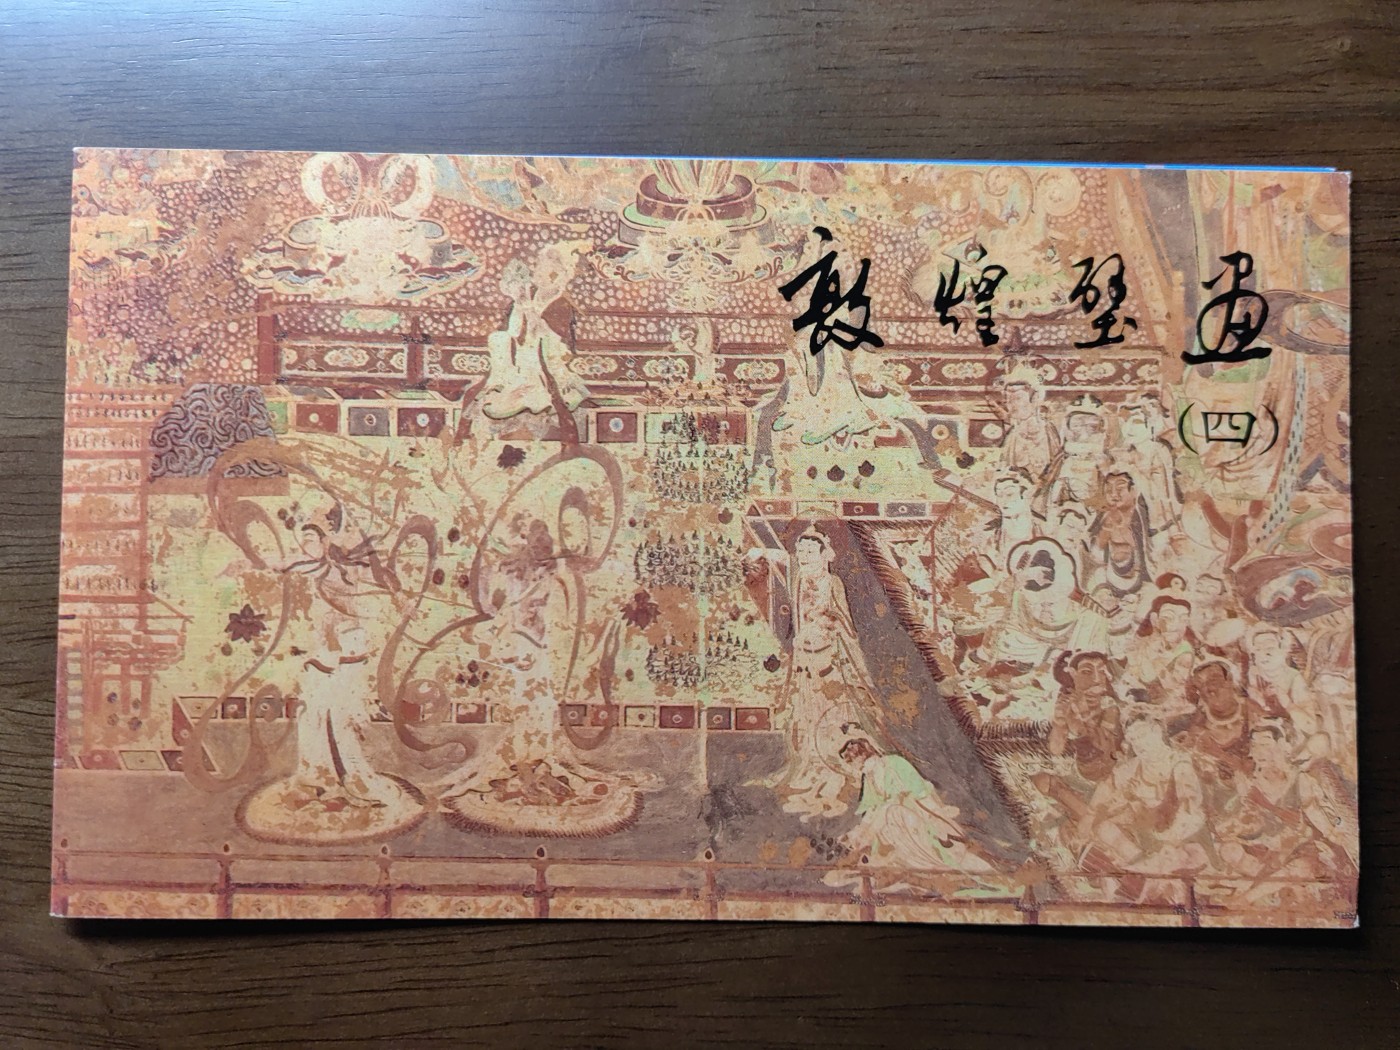 敦煌壁画
(四)